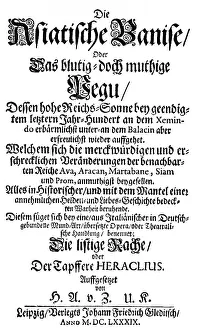 Die
Asiatische Banise/
Oder
Das blutig-doch muthige
Pegu/
Dessen hohe Reichs-Sonne bey geendig-
tem letztern Jahr-Hundert an dem Xemin-
do erbärmlichst unter-an dem Balacin aber
erfreulichst wieder auffgehet.
Welchem sich die merckwürdigen und er-
schrecklichen Veränderungen der benachbar-
ten Reiche Ava, Aracan, Martabane, Siam
und Prom, anmuthigst beygesellen.
Alles in Historischer/ und mit dem Mantel einer
annehmlichen Helden-und Liebes-Geschichte bedeck-
ten Warheit beruhende.
Diesem füget sich bey eine/aus Italiänischer in Deutsch-
gebundene Mund-Art/übersetzte Opera/oder Theatrali-
sche Handlung/ benennet;
Die listige Rache/
oder
Der Tapffere HERACLIUS.
Auffgesetzet
von
H. A. v. Z. U. K.
Leipzig/Verlegts Johann Friedrich Gleditsch/
ANNO M. DC. LXXXIX.